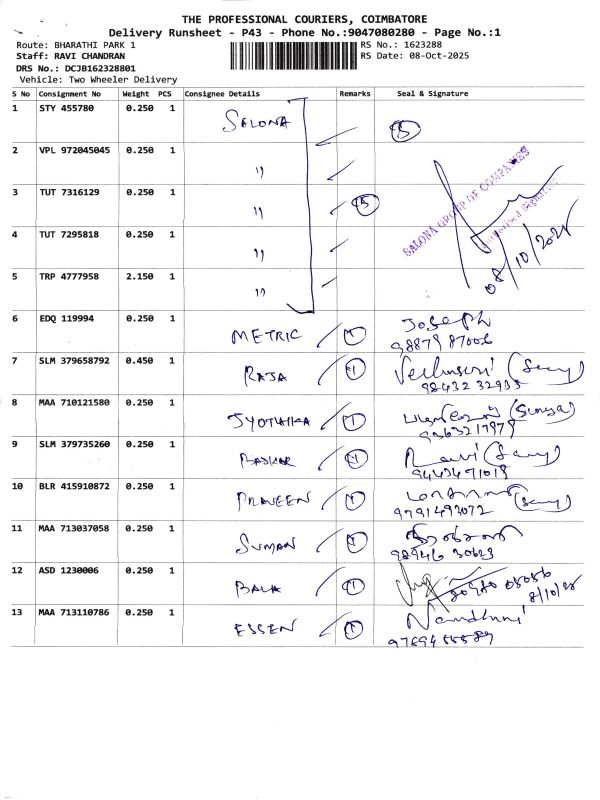 THE PROFESSIONAL COURIERS, COIMBATORE
Delivery Runsheet - P43 - Phone No.:9047080280 - Page No.:1
Route: BHARATHI PARK 1 RS No.: 1623288
Staff: RAVI CHANDRAN RS Date: 08-Oct-2025
DRS No.: DCJB162328801
Vehicle: Two Wheeler Delivery
S No Consignment No Weight PCS Consignee Details Remarks Seal & Signature
1 STY 455780 0.250 1 SALONA 5
2 VPL 972045045 0.250 1 "
3 TUT 7316129 0.250 1 " 5
SALONA GROUP OF COMPANIES
4 TUT 7295818 0.250 1 "
08/10/2025
5 TRP 4777958 2.150 1 "
6 EDQ 119994 0.250 1 METRIC 1 Joseph
98879 87006
7 SLM 379658792 0.450 1 RAJA 1
98432 32935
8 MAA 710121580 0.250 1 JYOTHIKA 1
9 SLM 379735260 0.250 1 BASKAR 1 Ravi
10 BLR 415910872 0.250 1 PRAVEEN 1
11 MAA 713037058 0.250 1 SUMAN 1
98946 30623
12 ASD 1230006 0.250 1 BALA 1
8/10/25
13 MAA 713110786 0.250 1 ESSEN 1 Nandhini